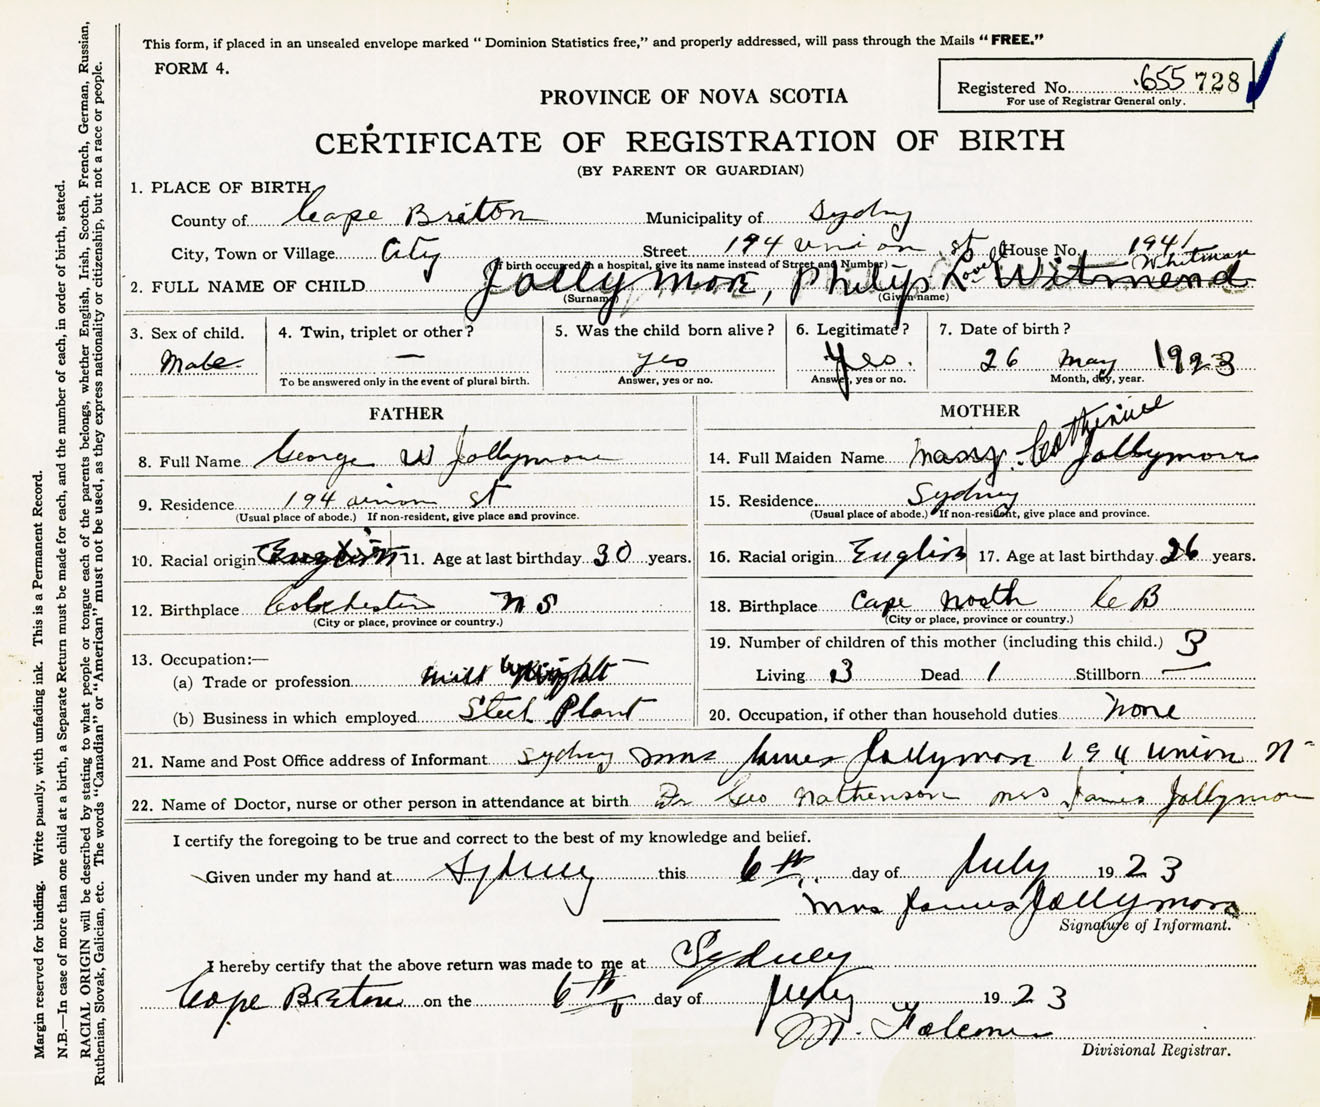 This form, if placed in an unsealed envelope marked "Dominion Statistics free," and properly addressed, will pass through the Mails "FREE."
FORM 4.
Registered No. 655728
For use of Registrar General only.
PROVINCE OF NOVA SCOTIA
CERTIFICATE OF REGISTRATION OF BIRTH
(BY PARENT OR GUARDIAN)
1. PLACE OF BIRTH
County of Cape Breton Municipality of Sydny
City, Town or Village City Street 194 union st House No. 194
(If birth occurred in a hospital, give its name instead of Street and Number)
Lovell Whitman
2. FULL NAME OF CHILD Jollymore, Philip L. Witmend
(Surname) (Given name)
3. Sex of child. 4. Twin, triplet or other? 5. Was the child born alive? 6. Legitimate? 7. Date of birth?
Male — yes Yes. 26 May 1923
To be answered only in the event of plural birth. Answer, yes or no. Answer, yes or no. Month, day, year.
FATHER MOTHER
8. Full Name George W Jollymore 14. Full Maiden Name Mary Catherine Jollymore
9. Residence 194 union st 15. Residence Sydney
(Usual place of abode.) If non-resident, give place and province. (Usual place of abode.) If non-resident, give place and province.
10. Racial origin English 11. Age at last birthday 30 years. 16. Racial origin English 17. Age at last birthday 26 years.
12. Birthplace Colchester N S 18. Birthplace Cape North C B
(City or place, province or country.) (City or place, province or country.)
13. Occupation:— 19. Number of children of this mother (including this child.) 3
(a) Trade or profession Mill Wright Living 3 Dead 1 Stillborn —
(b) Business in which employed Steel Plant 20. Occupation, if other than household duties None
21. Name and Post Office address of Informant Sydney Mrs James Jollymore 194 Union
22. Name of Doctor, nurse or other person in attendance at birth Dr Geo Mathenson Mrs James Jollymore
I certify the foregoing to be true and correct to the best of my knowledge and belief.
Given under my hand at Sydney this 6th day of July 1923
Mrs James Jollymore
Signature of Informant.
I hereby certify that the above return was made to me at Sydney
Cape Breton on the 6th day of July 1923
Divisional Registrar.
Margin reserved for binding. Write plainly, with unfading ink. This is a Permanent Record.
N.B.—In case of more than one child at a birth, a Separate Return must be made for each, and the number of each, in order of birth, stated.
RACIAL ORIGIN will be described by stating to what people or tongue each of the parents belongs, whether English, Irish, Scotch, French, German, Russian,
Ruthenian, Slovak, Galician, etc. The words "Canadian" or "American" must not be used, as they express nationality or citizenship, but not a race or people.